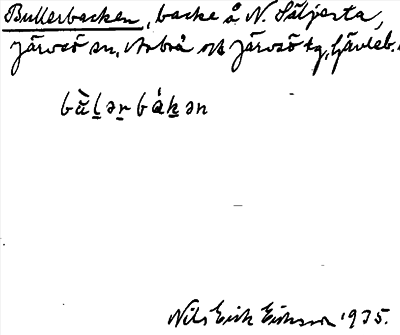 Bullerbacken, backe å N. Säljesta,
Järvsö sn, Arbrå och Järvsö tg, Gävleb.
bʉ̀l̠ər̠bák̠ən
Nils Erik Eriksson 1935.